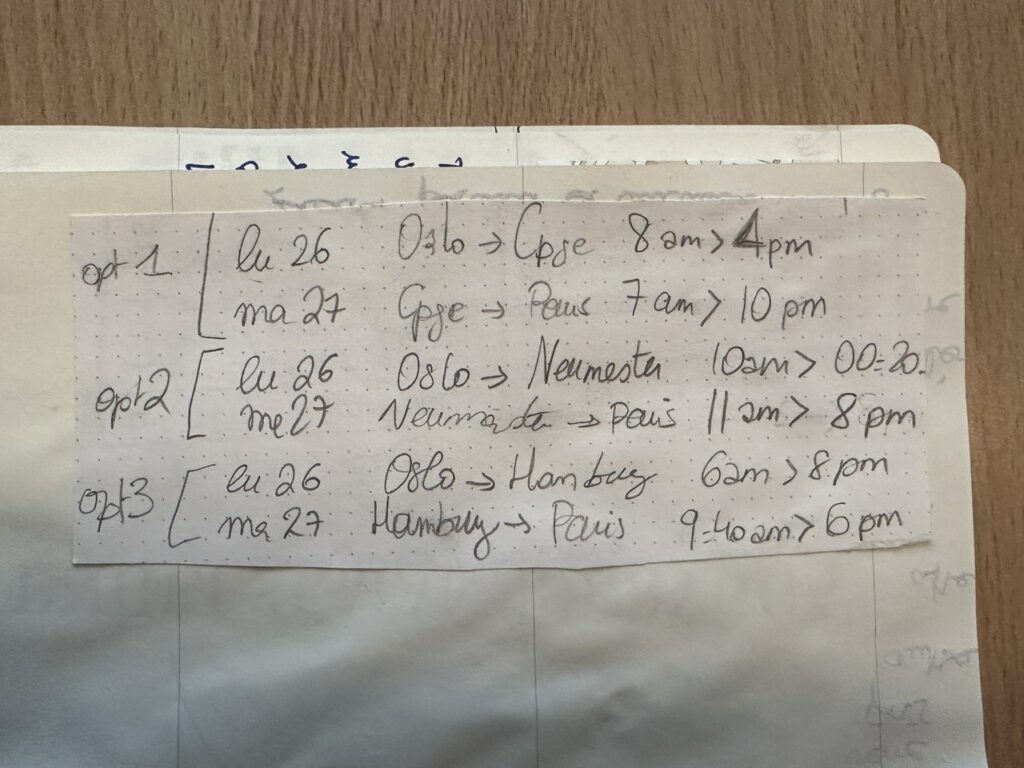 opt 1 lu 26 Oslo → Cpge 8 am > 4 pm
ma 27 Cpge → Paris 7 am > 10 pm
opt 2 lu 26 Oslo → Neumester 10 am > 00:20
me 27 Neumaster → Paris 11 am > 8 pm
opt 3 lu 26 Oslo → Hamburg 6 am > 8 pm
ma 27 Hamburg → Paris 9:40 am > 6 pm